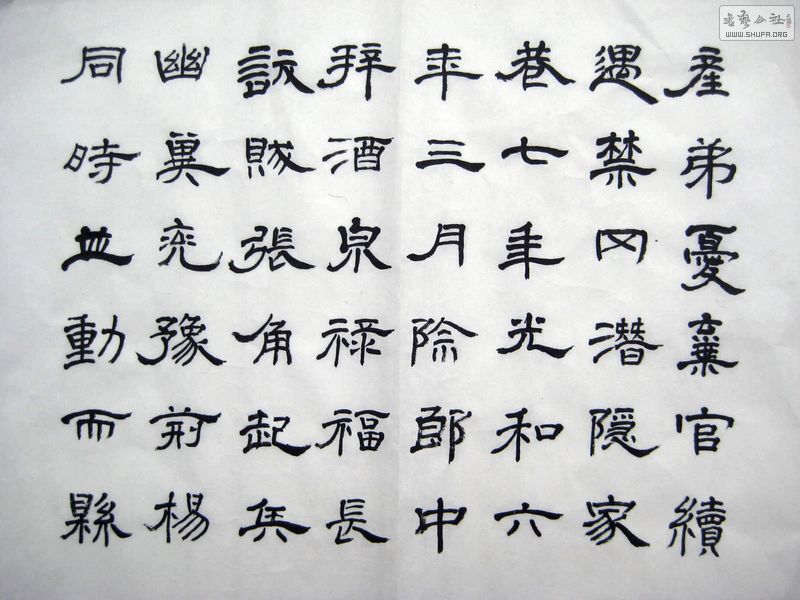 產弟憂棄官續
遇禁网潛隱家
巷七年光和六
年三月除郎中
拜酒泉祿福長
訞賊張角起兵
幽冀兗豫荊楊
同時並動而縣
書藝公社
WWW.SHUFA.ORG